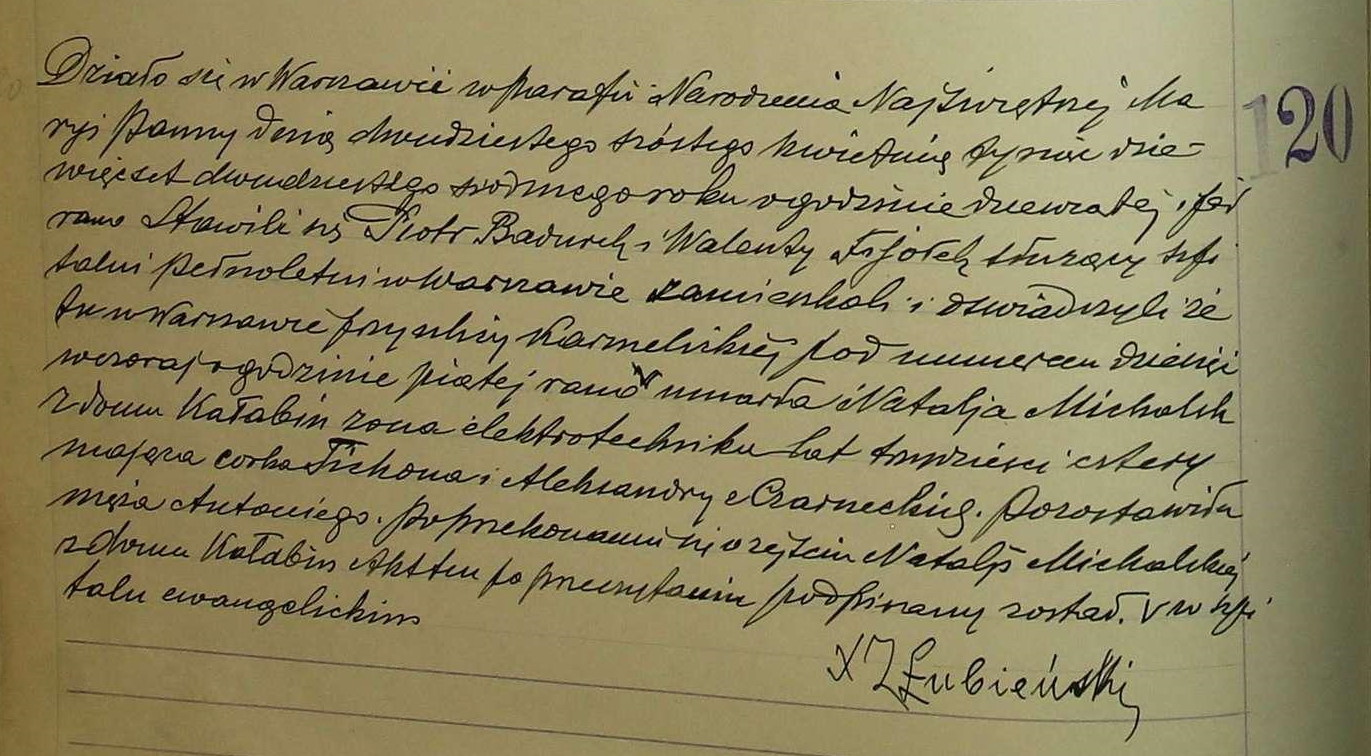 Działo się w Warszawie w parafii Narodzenia Najświętszej Ma
120
ryi Panny dnia dwudziestego szóstego kwietnia tysiąc dzie-
więćset dwudziestego siódmego roku o godzinie dziewiątej i pół
rano Stawili się Piotr Badurek i Walenty Fijołek służący szpi
talni pełnoletni w Warszawie zamieszkali i oświadczyli że
tu w Warszawie przy ulicy Karmelickiej pod numerem dziesięć
wczoraj o godzinie piątej rano V umarła Natalja Michalsk
z domu Kałabin żona elektrotechnika lat trzydzieści cztery
mająca córka Tichona i Aleksandry z Czarneckich. Pozostawiła
męża Antoniego. Po przekonaniu się o zejściu Natalji Michalskiej
z domu Kałabin Akt ten po przeczytaniu podpisany został. V w szpi
talu ewangelickim
X Z Łubieński